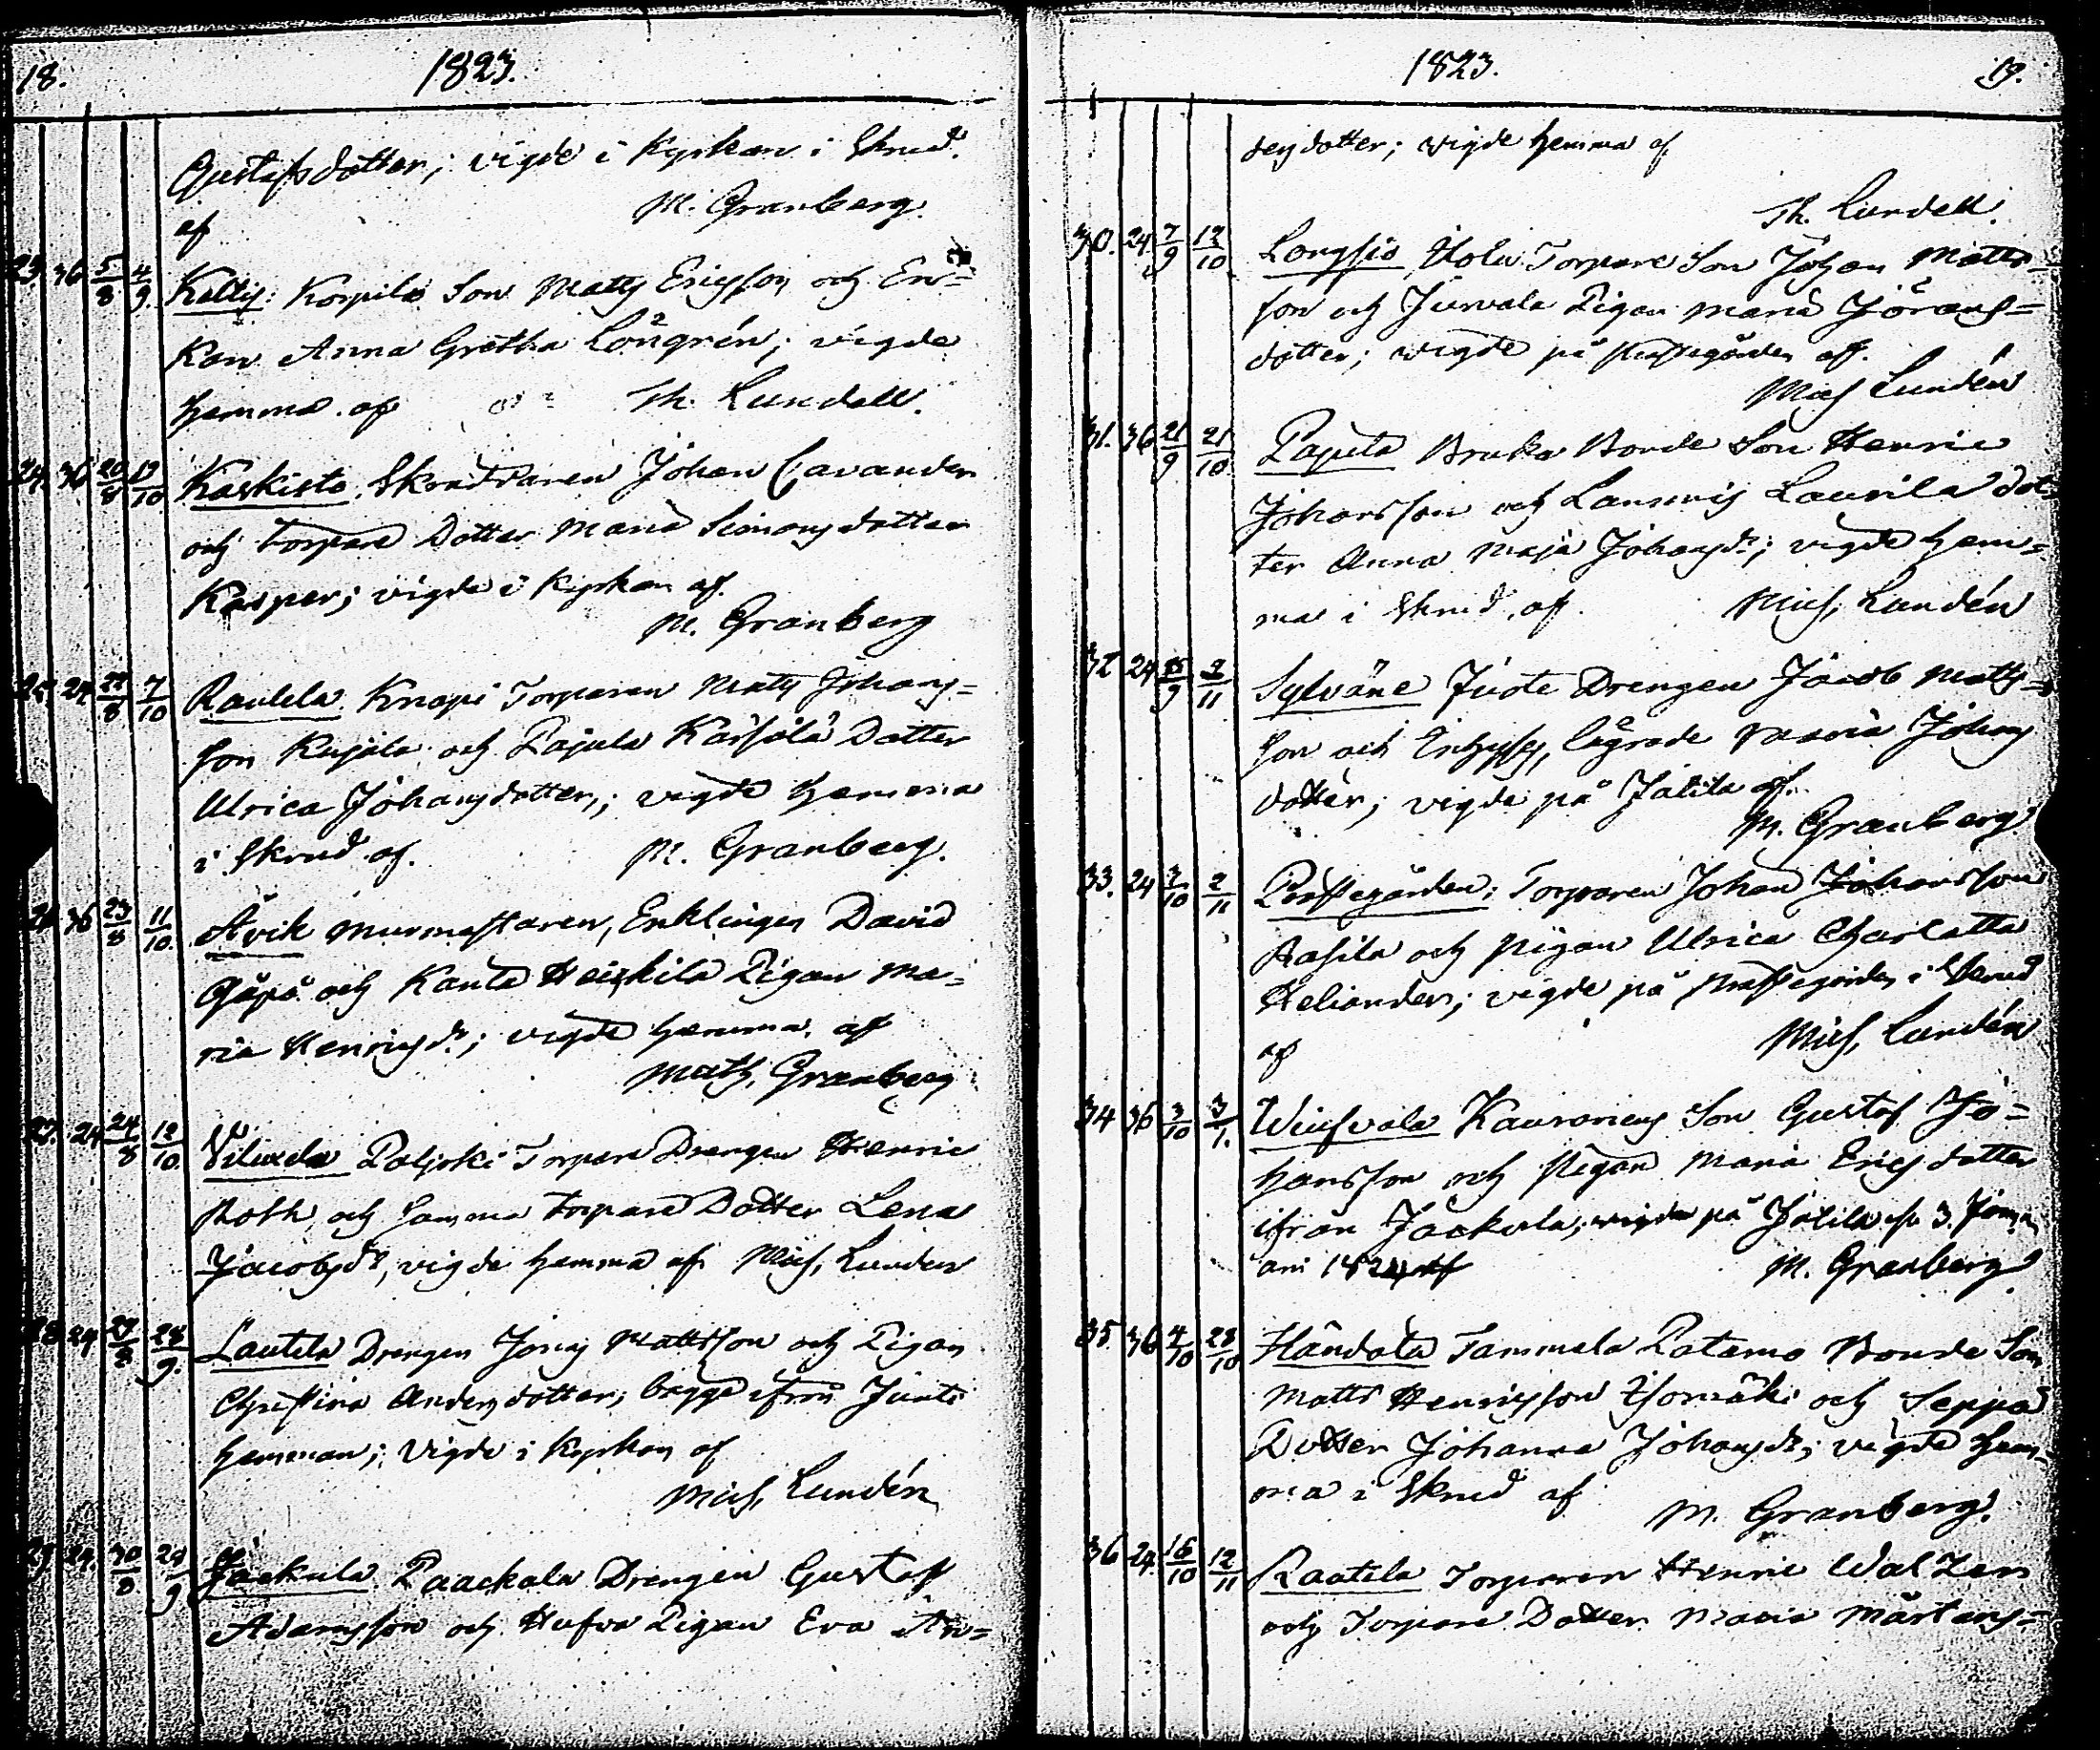 18. 1823.
Gustafsdotter; vigde i Kyrkan i Skrud.
af M. Granberg.
23. 36 5/8 4/9 Kollis: Korpila Son Matts Ericsson och En-
kan Anna Gretha Löngrén; vigde
hemma af Th. Lundell.
24. 36 20/8 19/10 Kaskisto Skrädaren Johan Cavander
och torpare Dotter Maria Simonsdotter
Kasper; vigde i Kyrkan af
M. Granberg
25. 24 22/8 7/10 Rautela Knapi Torparen Matts Johans-
son Kujala och Pajula Kärsälä Dotter
Ulrica Johansdotter; vigde hemma
i Skrud af. M. Granberg.
26 36 23/8 11/10. Åvik Murmästaren, Enklingen David
Gåpå och Kanta Heikkilä Pigan Ma-
ria Henricsdr; vigde hemma af
Math. Granberg
27. 24 24/8 12/10 Viluxela Paljoki Torpare Drengen Henric
Roth och samma torpare Dotter Lena
Jacobsdr, vigde hemma af Mich. Lunden
28 24 27/8 28/9. Lautela Drengen Jöns Mattsson och Pigan
Christina Andersdotter, bägge ifrån Junti
hemman; vigde i Kyrkan af
Mich. Lundén
29. 24. 30/8 28/9 Jäckula Paackala Drengen Gustaf
Adamsson och Hufva Pigan Eva An-
1823. 19.
dersdotter; vigde hemma af
Th. Lundell.
30. 24 7/9 12/10 Longsio Uola Torpare Son Johan Matts-
son och Jurvala Pigan Maria Jörans-
dotter; vigde på Prestegården aff.
Mich Lundén
31. 36 21/9 21/10 Pajula Bruka Bonde Son Henric
Johansson och Lausnis Laurila Dot-
ter Anna Maja Johansdr; vigde hem-
ma i Skrud af Mich. Lundén
32 24 25/9 2/11 Sylväne Juote Drengen Jacob Matts-
son och lägrade Maria Johans
dotter; vigde på Jalila af.
M. Granberg
33. 24 3/10 2/11 Prestegården; Torparen Johan Johansson
Rasila och Pigan Ulrica Charlotta
Heliander; vigde på Prestegården i Skrud
af Mich. Lundén
34 36 3/10 3/1. Wiusvala Kauranieus Son Gustaf Jo-
hansson och Pigan Maria Ericsdotter
ifrån Jäckula; vigde på Jalila d. 3. Janu
ari 1824 af M. Granberg
35. 36 4/10 28/10 Händola Tammela Patamo Bonde Son
Matts Henricsson Isomäki och Seppä
Dotter Johanna Johansdr; vigde hem-
ma i Skrud af M. Granberg.
36 24. 16/10 12/11 Raatila Torparen Henric Walzen
och Torpare Dotter Maria Mårtens-